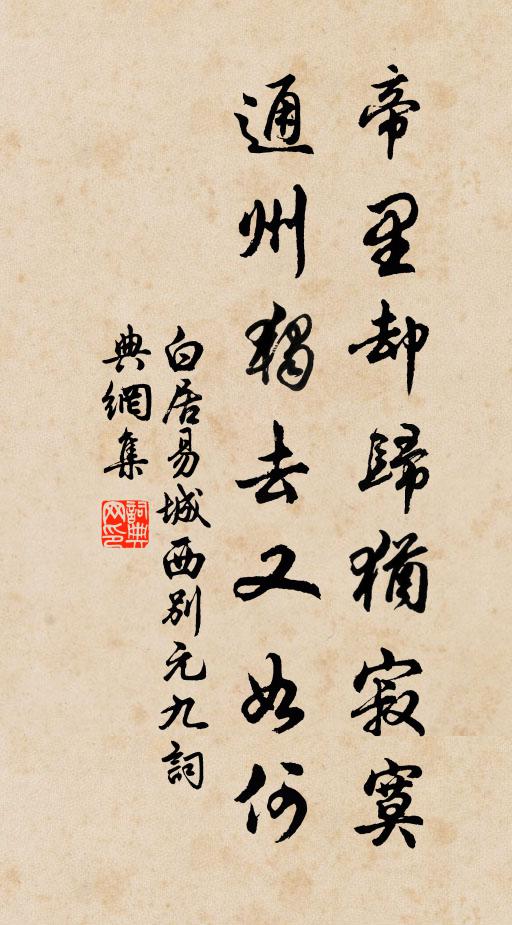 帝里却歸猶寂寞
通州獨去又如何
白居易城西別元九詞
典網集
詞典
网印